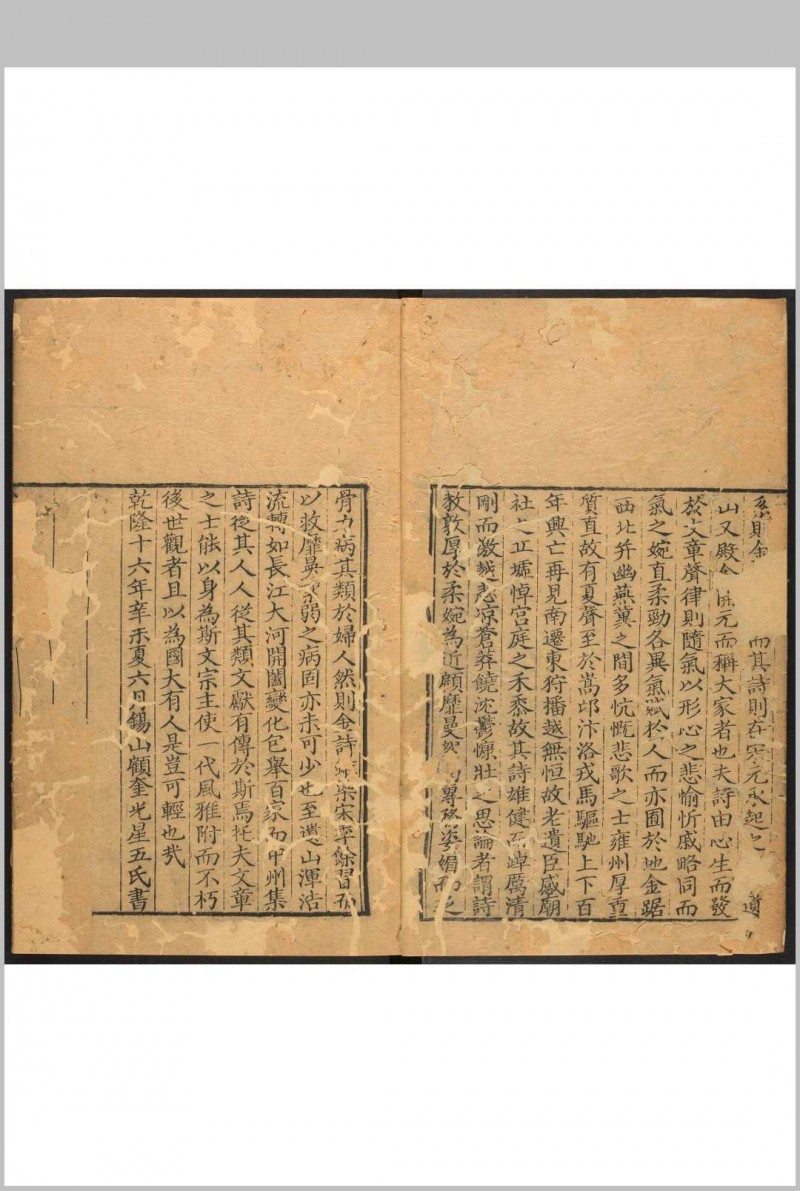 系則金 而其詩則在 元 起之 遺
山又殿金 元而稱大家者也夫詩由心生而發
於文章聲律則隨氣以形心之悲愉忻戚略同而
氣之婉直柔勁各異氣賦於人而亦囿於地金踞
西北并幽燕冀之間多忼慨悲歌之士雍州厚重
質直故有夏聲至於嵩邙汴洛戎馬驅馳上下百
年興亡再見南遷東狩播越無恒故老遺臣感廟
社之丘墟悼宮庭之禾黍故其詩雄健而踔厲清
剛而激越悲凉蒼莽饒沈鬱慷壯之思論者謂詩
教敦厚於柔婉為近顧靡曼 專務姿媚而乏
骨力病其類於婦人然則金詩 染宋季餘習
以救靡 弱之病固亦未可少也至遺山渾浩
流轉如長江大河開闔變化包舉百家而中州集
詩從其人人從其類文獻有傳於斯焉托夫文章
之士能以身為斯文宗主使一代風雅附而不朽
後世觀者且以為國大有人是豈可輕也哉
乾隆十六年辛未夏六月錫山顧奎光星五氏書